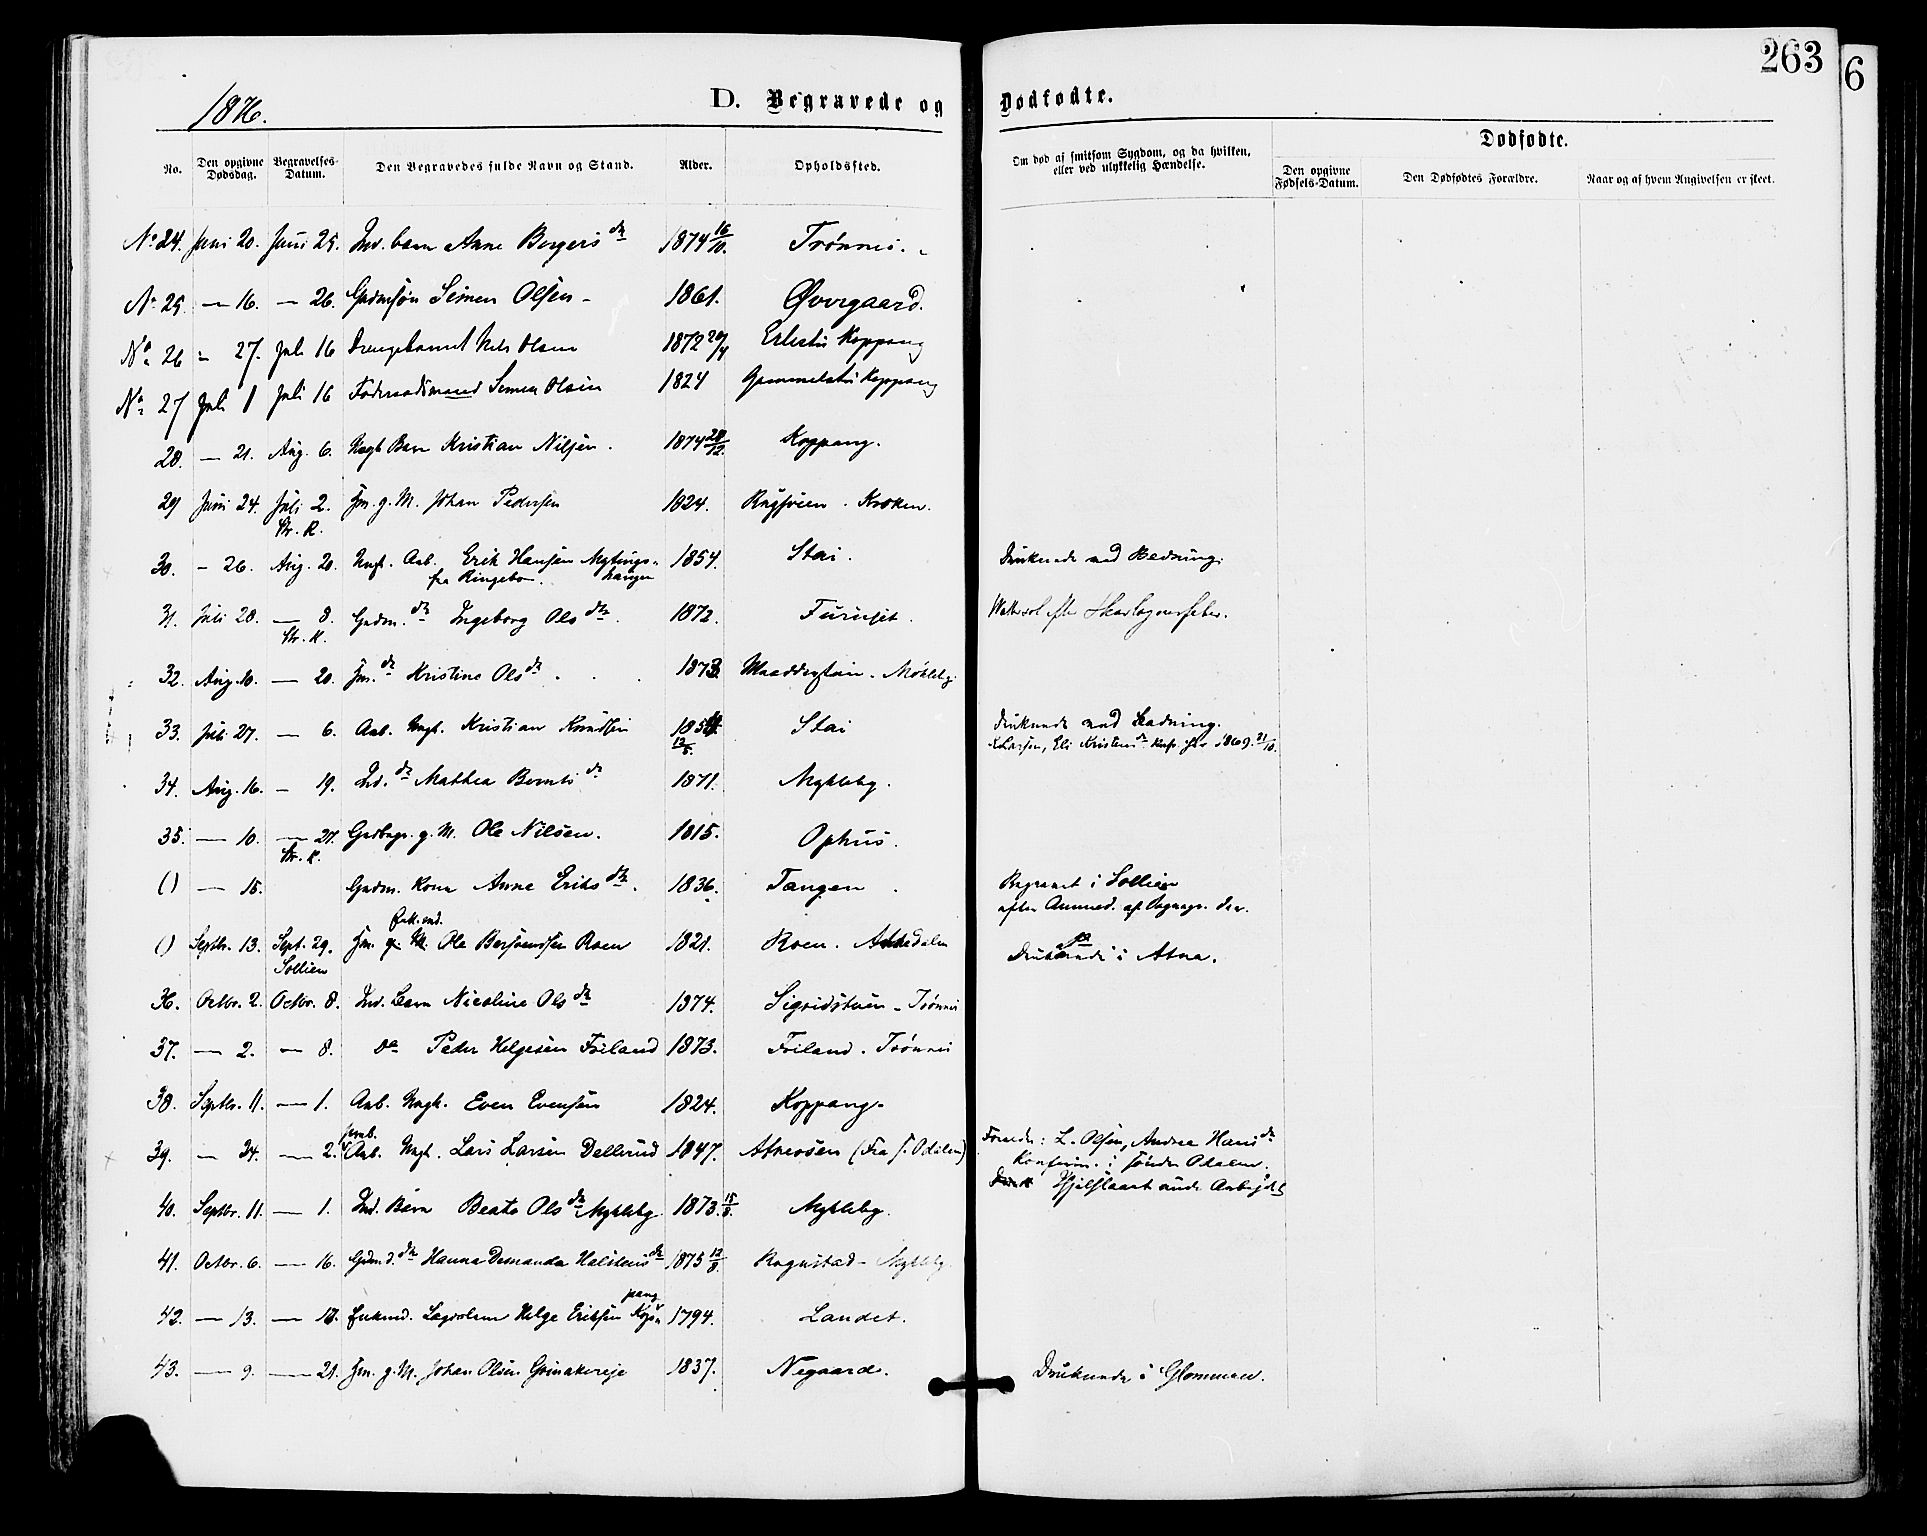 263
6
1876.
D. Begravede og Dødfødte.
No. Den opgivne Dødsdag. Begravelses-Datum. Den Begravedes fulde Navn og Stand. Alder. Opholdssted. Om død af smitsom Sygdom, og da hvilken, eller ved ulykkelig Hændelse.
Dødfødte.
Den opgivne Fødsels-Datum. Den Dødfødtes Forældre. Naar og af hvem Angivelsen er skeet.
No 24. Juni 20. Juni 25. Ind. barn Anne Bergersdr 1874 16/10. Trønnes.
No 25. — 16. — 26. Gadmsøn Simen Olsen 1861. Øvergaard.
No 26 — 27. Juli 16 Drengebarnet Nils Olsen 1872 29/4 Koppang
No 27 Juli 1 Juli 16 Føderaadsmand Simen Olsen 1824 Koppang
28. — 21. Aug. 6. Ungk Barn Kristian Nilsen. 1874 28/12. Koppang.
29 Juni 24. Juli 2. Jm. g. M. Johan Pedersen 1824. Kroken.
Str. K.
30. — 26. Aug. 20. Ungk. Arb. Erik Hansen Mytings- 1854. Stai. Druknede ved Badning.
fra Ringebo. haugen
31. Juli 28. — 8. Gadm. dr Ingeborg Olsdr. 1872. Furuset. efter Skarlagensfeber.
Str. K.
32. Aug. 10. — 20. Jm. dr Kristine Olsdr. 1873. Møkleby
33. Juli 27. — 6. Arb. Ungk. Kristian Knudsen 1854. Stai Druknede ved Badning.
12/5. K. Larsen, Eli Kristensdr Konf. her 1869. 31/10.
34. Aug. 16. — 19. Ind. dr Mathea Berntsdr 1871. Mykleby.
35. — 10. — 27. Gadbgr. g. M. Ole Nilsen. 1815. Ophus.
Str. K.
() — 15. Gadm. Kone Anne Eriksdr. 1836. Tangen. Begravet i Sollien
efter Anmed. af Sognepr. der.
Enkemd.
() Septbr. 13. Sept. 29. Jm. Ole Roen 1821. Roen. Atnedalen Druknede i Atna.
Sollien
36. Octbr. 2. Octbr. 8. Ind. Barn Nicoline Olsdr 1874. Sigridstuen - Trønnes
37. — 2. — 8. do Peder Helgesen Foiland 1873. Foiland. Trønnes
38. Septbr. 11. — 1. Arb. Ungk. Even Evensen 1824. Koppang
39. — 24. — 2. Arb. Ungk. Lars Larsen Dellerud 1847. Atneosen (Fra S. Odalen) Foreldr: L. Olsen, Andrea Hansdr
Konfirm. i søndre Odalen.
Ihjelslaaet under Arbejdet
40. Septbr. 11. — 1. Ind. Barn Beate Olsdr Mykleby 1873. 15/8. Mykleby.
41. Octbr. 6. — 16. Gdmd. dr Hanna Demanda Halstensdr 1875 12/8. Rognstad - Mykleby
42. — 13. — 17. Enkemd. Lægdslem Helge Eriksen Koppang 1794. Landet.
43. — 9. — 21. Jm. g. M. Johan Olsen 1837. Negaard. Druknede i Glommen.